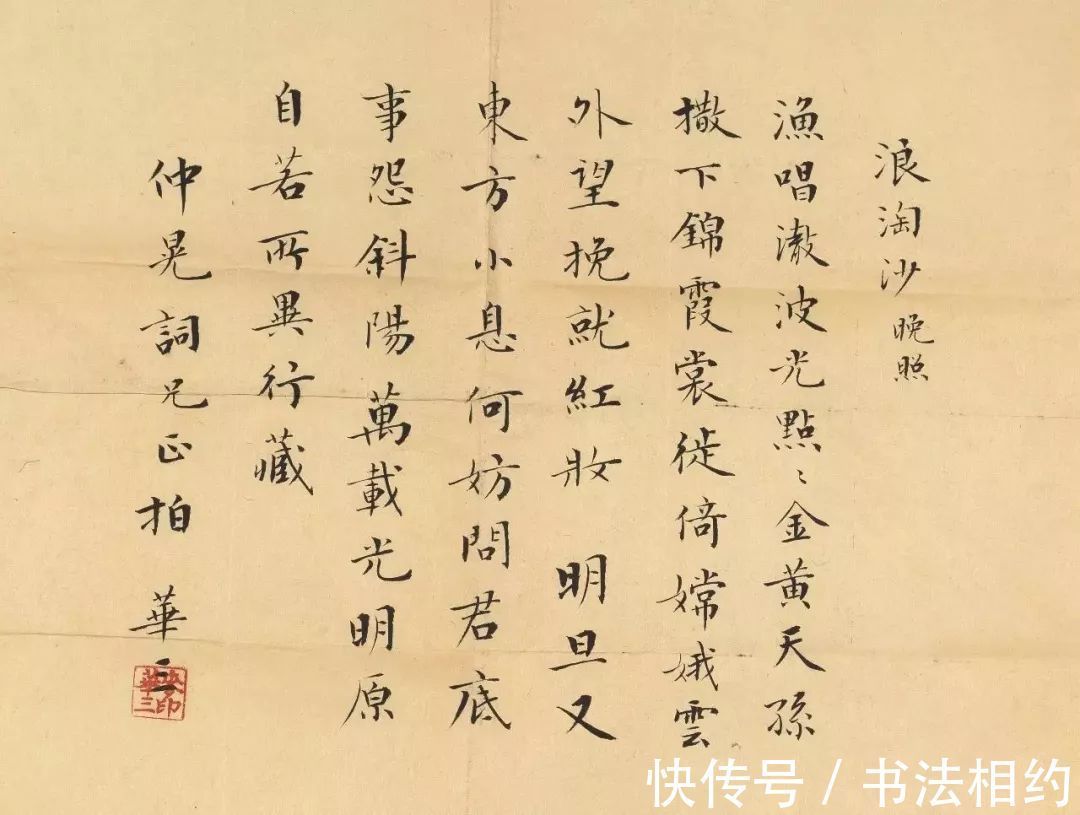 浪淘沙 晚照
漁唱澈波光點〻金黃天孫
撒下錦霞裳從倚嫦娥雲
外望挽就紅妝 明旦又
東方小息何妨問君底
事怨斜陽萬載光明原
自若所異行藏
仲晃詞兄正拍 華三
華三
快传号 / 书法相约